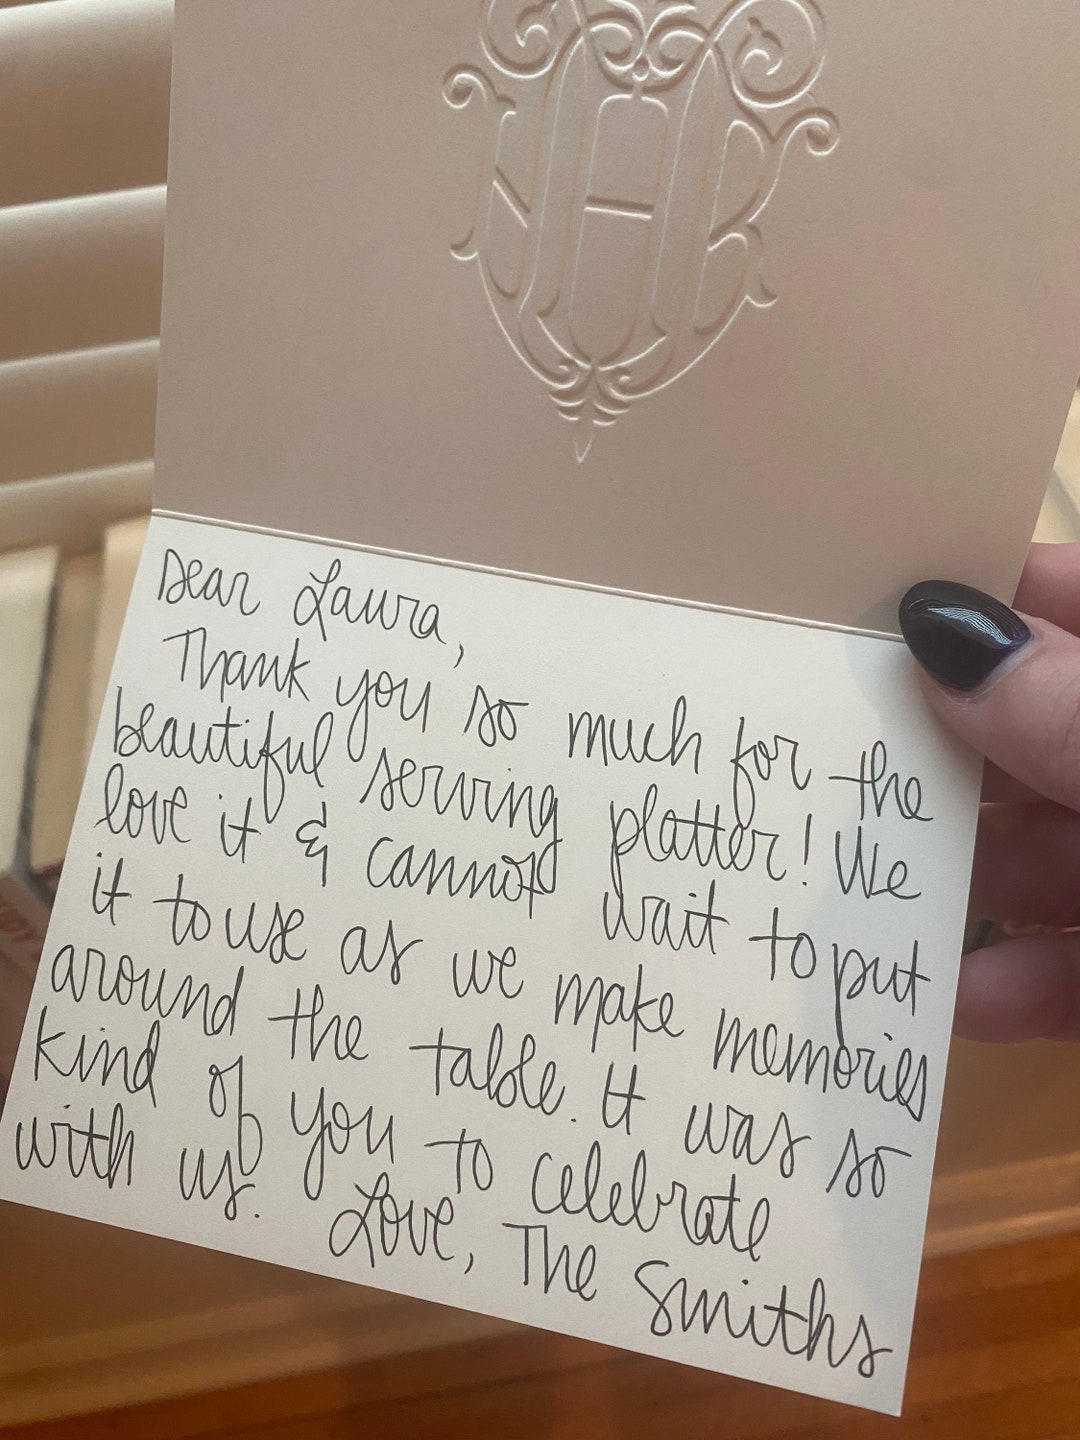 Dear Laura,
Thank you so much for the
beautiful serving platter! We
love it & cannot wait to put
it to use as we make memories
around the table. It was so
kind of you to celebrate
with us. Love, The Smiths